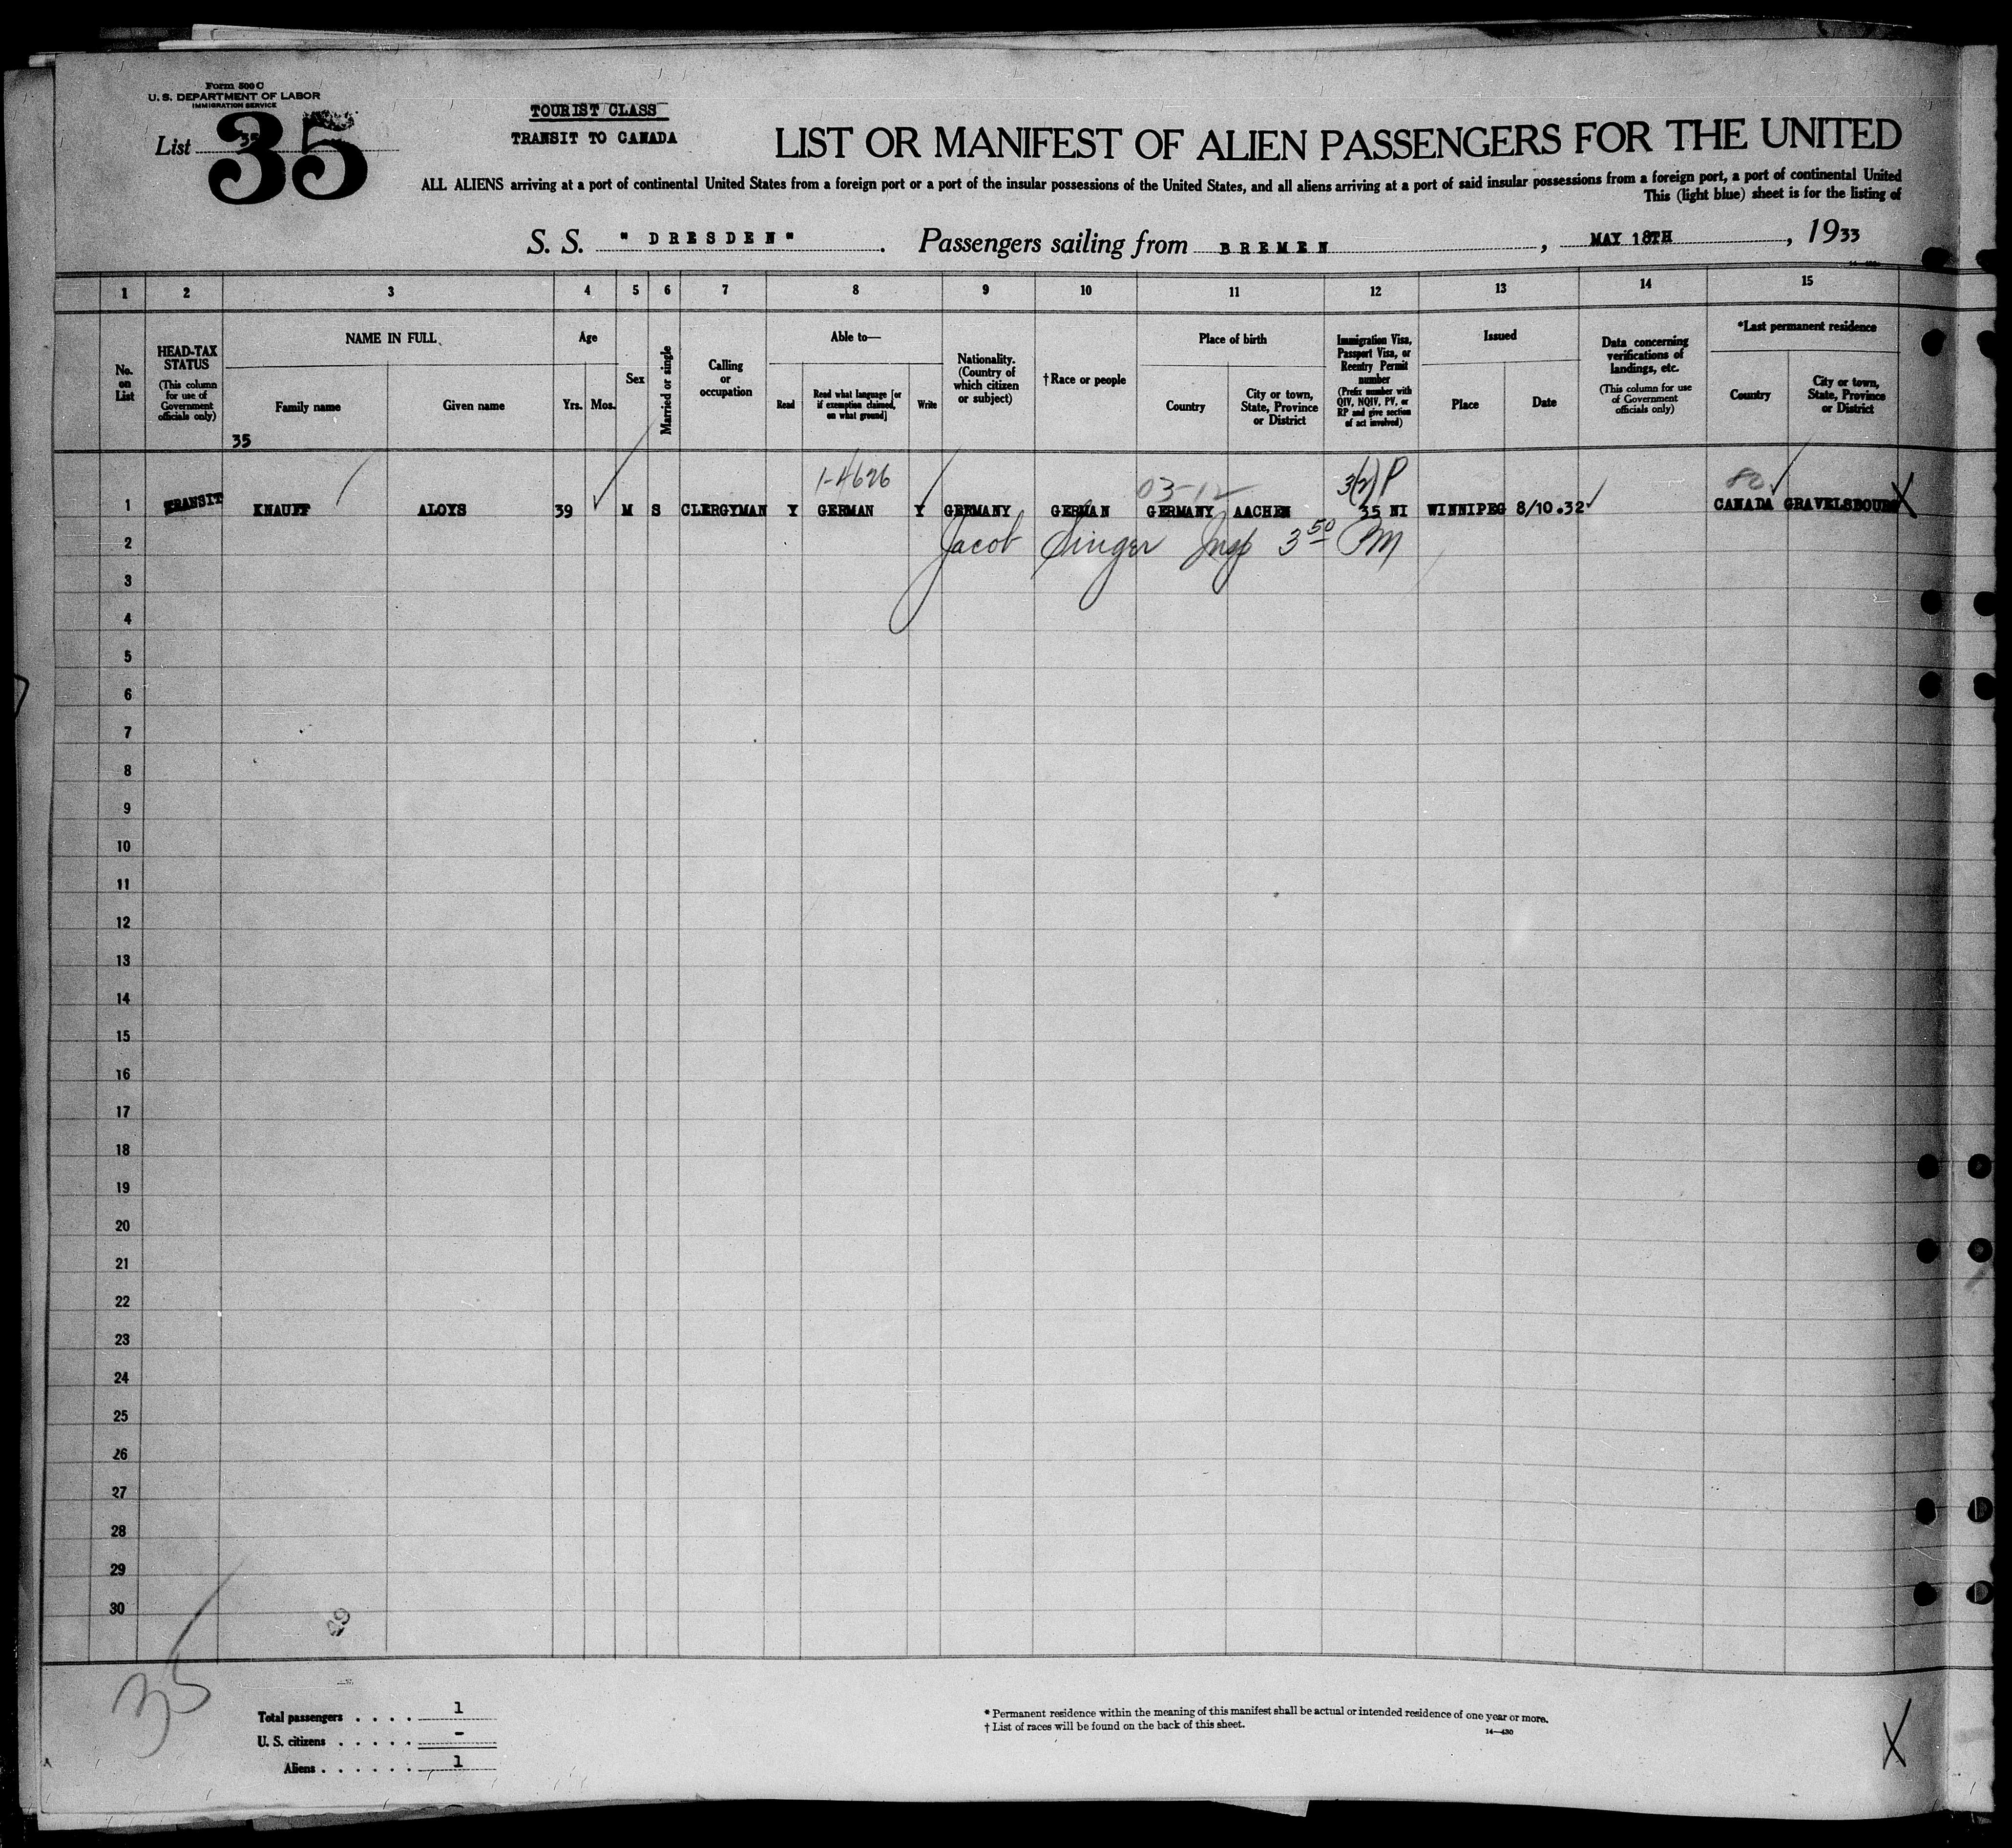 Form 500 C
U. S. DEPARTMENT OF LABOR
IMMIGRATION SERVICE
List 35
35
TOURIST CLASS
TRANSIT TO CANADA
LIST OR MANIFEST OF ALIEN PASSENGERS FOR THE UNITED
ALL ALIENS arriving at a port of continental United States from a foreign port or a port of the insular possessions of the United States, and all aliens arriving at a port of said insular possessions from a foreign port, a port of continental United
This (light blue) sheet is for the listing of
S. S. "DRESDEN". Passengers sailing from BREMEN, MAY 18TH, 1933
1 2 3 4 5 6 7 8 9 10 11 12 13 14 15
No. on List
HEAD-TAX STATUS
(This column for use of Government officials only)
NAME IN FULL
Family name
Given name
35
Age
Yrs. Mos.
Sex
Married or single
Calling or occupation
Able to—
Read
Read what language [or if exemption claimed, on what ground]
Write
Nationality. (Country of which citizen or subject)
†Race or people
Place of birth
Country
City or town, State, Province or District
Immigration Visa, Passport Visa, or Reentry Permit number
(Prefix number with QIV, NQIV, PV, or RP and give section of act involved)
Issued
Place
Date
Data concerning verifications of landings, etc.
(This column for use of Government officials only)
*Last permanent residence
Country
City or town, State, Province or District
1-4626 03-12 3(2) P 80
1 TRANSIT KNAUFF ALOYS 39 M S CLERGYMAN Y GERMAN Y GERMANY GERMAN GERMANY AACHEN 35 NI WINNIPEG 8/10.32 CANADA GRAVELSBOURG X
2 Jacob Singer Insp 3 50 PM
3
4
5
6
7
8
9
10
11
12
13
14
15
16
17
18
19
20
21
22
23
24
25
26
27
28
29
30
35
Total passengers . . . . 1
U. S. citizens . . . . . -
Aliens . . . . . . 1
* Permanent residence within the meaning of this manifest shall be actual or intended residence of one year or more.
† List of races will be found on the back of this sheet.
14—430
X